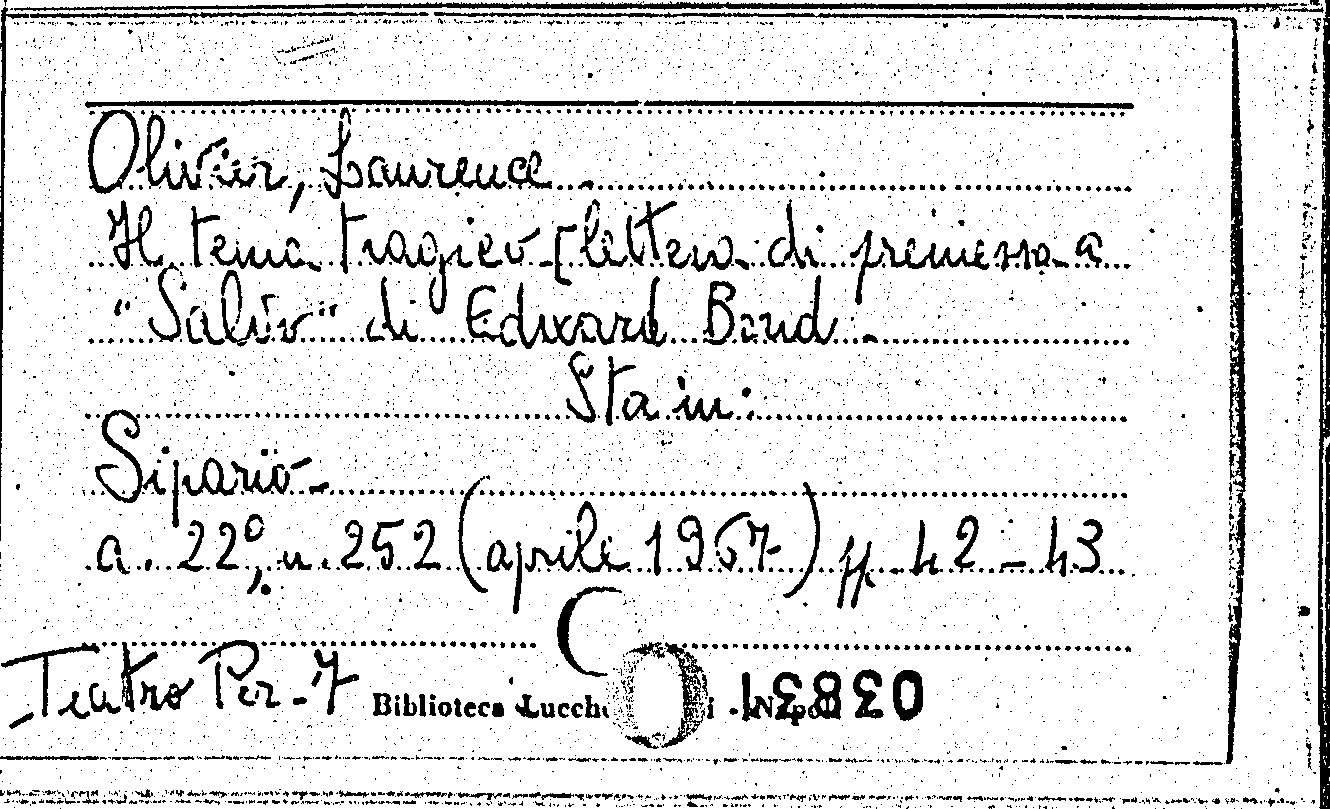 Olivier, Laurence.
Il tema tragico [lettera di premessa a
"Salvo" di Edward Bond.
Sta in:
Sipario -
a. 22°, n. 252 (aprile 1967) pp. 42 - 43
Teatro Per - 7 Biblioteca Lucche i - Napoli 03831